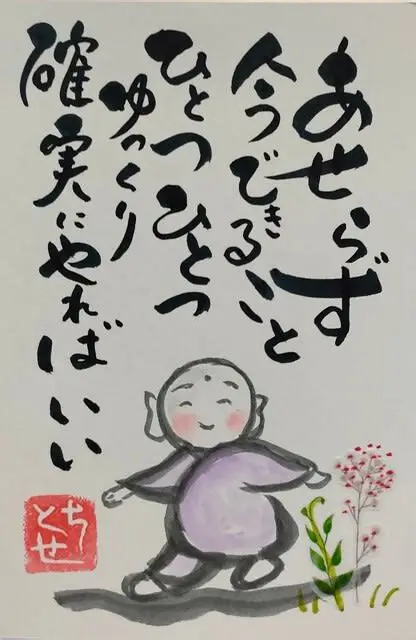 あせらず
今できること
ひとつひとつ
ゆっくり
確実にやればいい
ちとせ